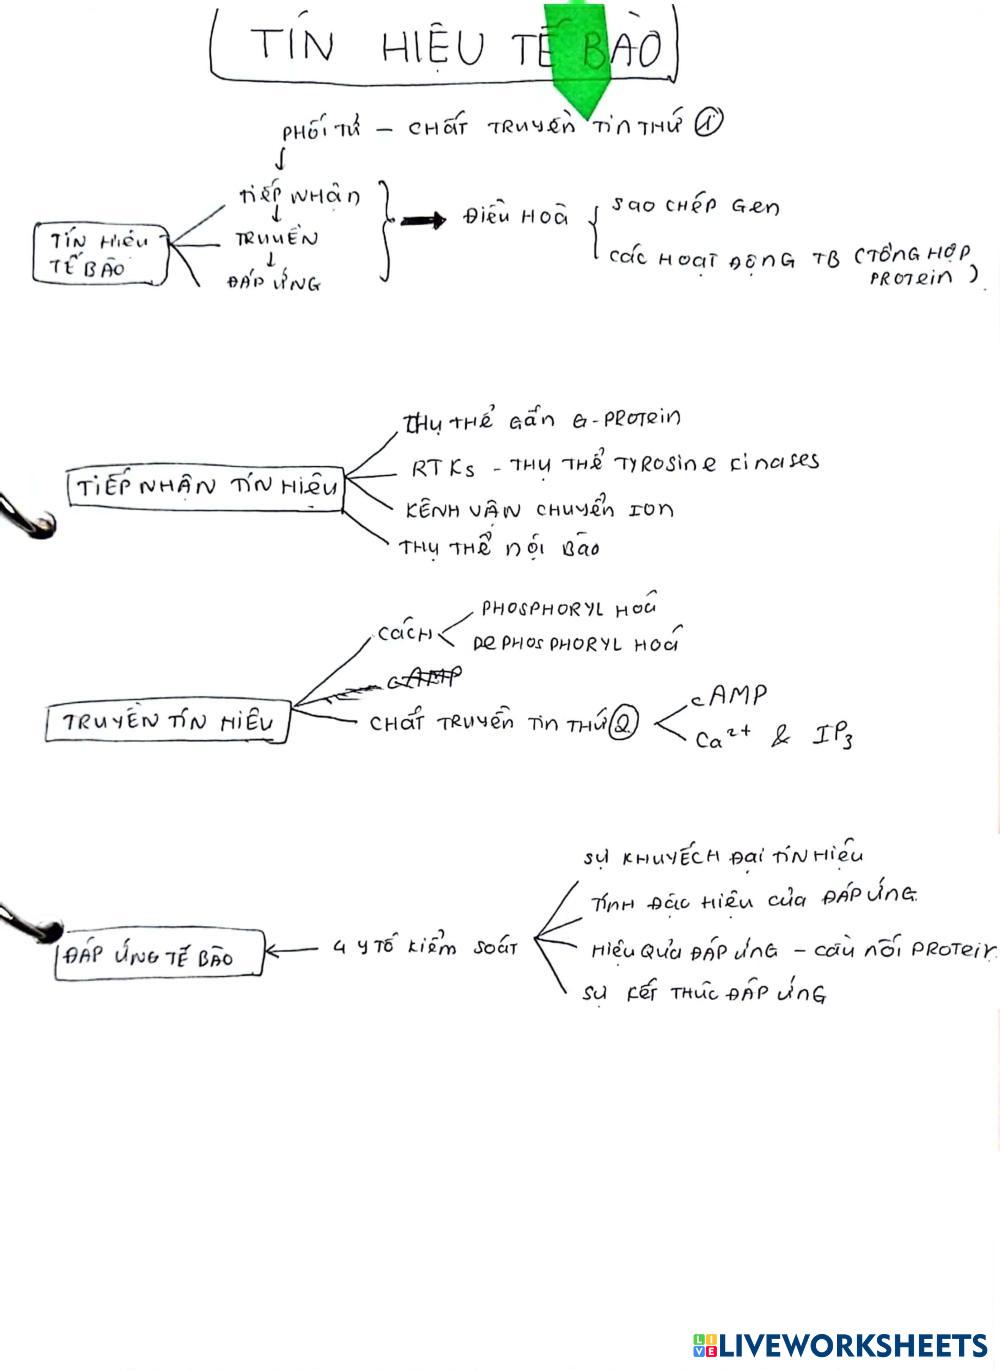 TÍN HIỆU TẾ BÀO
PHỐI TỬ - CHẤT TRUYỀN TIN THỨ 1
TIẾP NHẬN
TRUYỀN
ĐÁP ỨNG
TÍN HIỆU
TẾ BÀO
ĐIỀU HOÀ
SAO CHÉP GEN
CÁC HOẠT ĐỘNG TB (TỔNG HỢP
PROTEIN)
TIẾP NHẬN TÍN HIỆU
THỤ THỂ GẮN G-PROTEIN
RTKs - THỤ THỂ TYROSINE KINASES
KÊNH VẬN CHUYỂN ION
THỤ THỂ NỘI BÀO
TRUYỀN TÍN HIỆU
CÁCH
PHOSPHORYL HOÁ
DEPHOSPHORYL HOÁ
cAMP
CHẤT TRUYỀN TIN THỨ 2
cAMP
Ca²⁺ & IP₃
ĐÁP ỨNG TẾ BÀO
4 YTỐ KIỂM SOÁT
SỰ KHUYẾCH ĐẠI TÍN HIỆU
TÍNH ĐẶC HIỆU CỦA ĐÁP ỨNG
HIỆU QỦA ĐÁP ỨNG - CẦU NỐI PROTEIN
SỰ KẾT THÚC ĐÁP ỨNG
LIVEWORKSHEETS